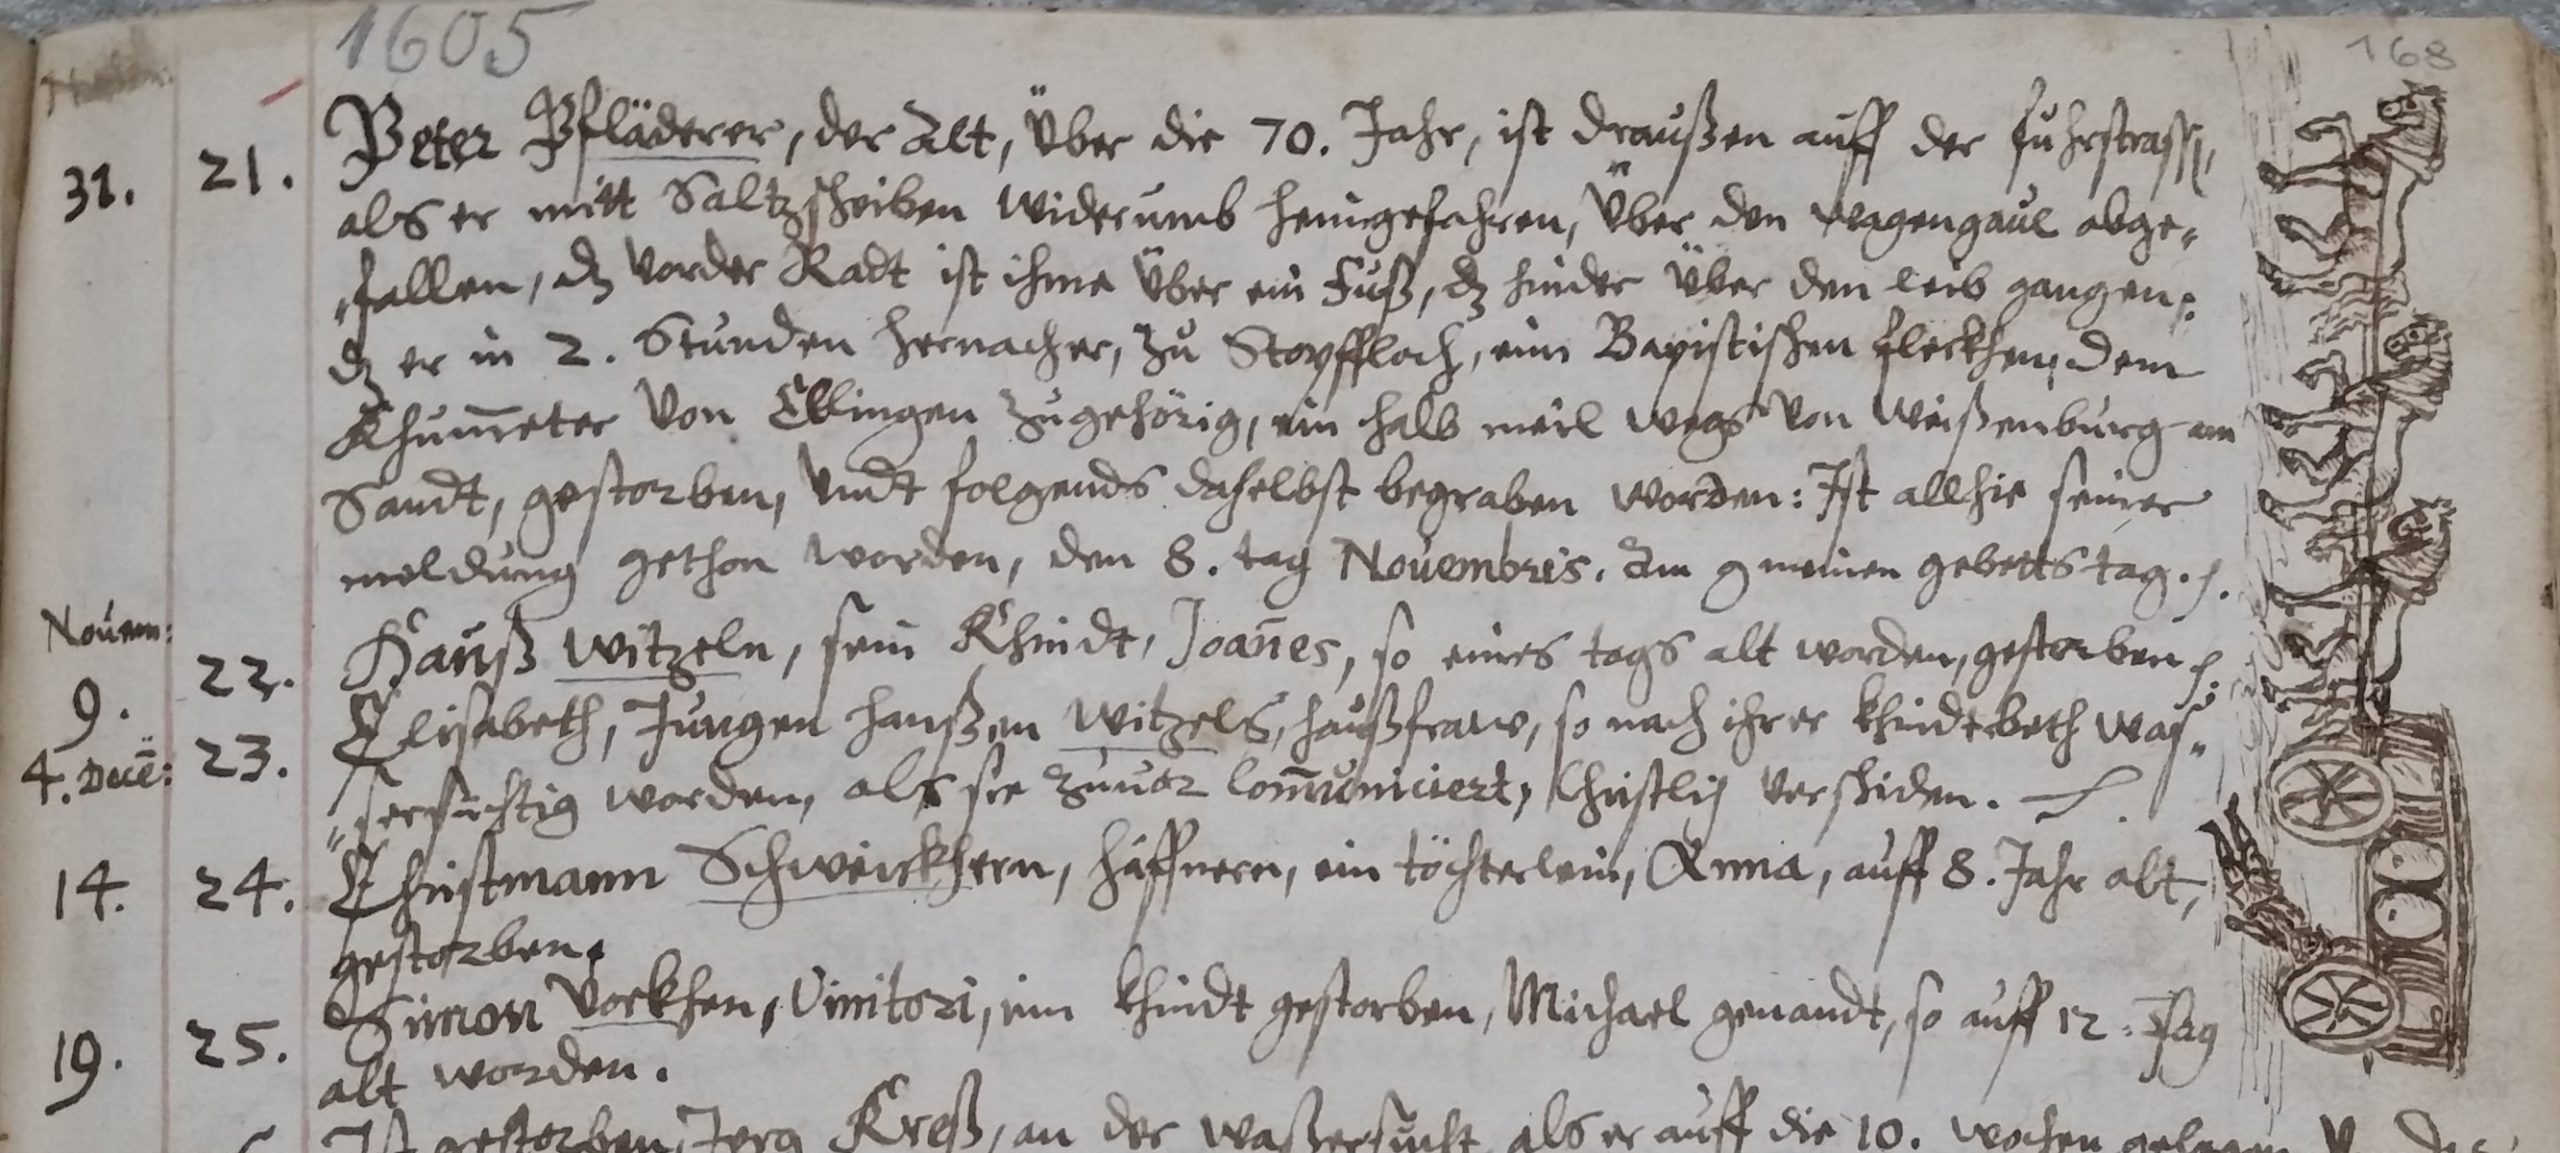 1605
168
31. 21. Peter Pfläderer, der Alt, Über die 70. Jahr, ist draußen auff der fuhrstrass,
als er mitt Saltzscheiben widerumb heimgefahren, Über den wagengaul abge„
„fallen, dz vorder Radt ist ihme Über ein Fuß, dz hinder Über den leib gangen:
dz er in 2. Stunden hernacher, zu Stopffloch, eim Bapistischen fleckhen, dem
Khum̄eter von Ellingen zugehörig, ein halb meil wegs von Weißenburg am
Sandt, gestorben, undt folgends daselbst begraben worden: Ist allhie seiner
meldung gethon worden, den 8. tag Nouembris. Am gmeinen gebetts tag.
Nouem:
9. 22. Hanß Witzeln, sein Khindt, Joan̄es, so eines tags alt worden, gestorben
4. Decē: 23. Elisabeth, Jungen hanßen Witzels, haußfraw, so nach ihrer khindtbeth was„
„sersuchtig worden, als sie zuuor com̄uniciert, Christlich verschiden.
14. 24. Christmann Schweickhern, häffnern, ein töchterlein, Anna, auff 8. Jahr alt,
gestorben.
19. 25. Simon Vorkhen, Vinitori, ein khindt gestorben, Michael genandt, so auff 12. Tag
alt worden.
Ist gestorben, Jerg Kreß, an der Waßersucht, als er auff die 10. wochen gelegen